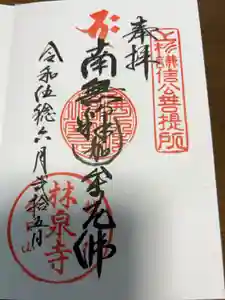 奉拝
上杉謙信公菩提所
南無釈迦牟尼佛
令和伍稔六月弐拾五日
林泉寺